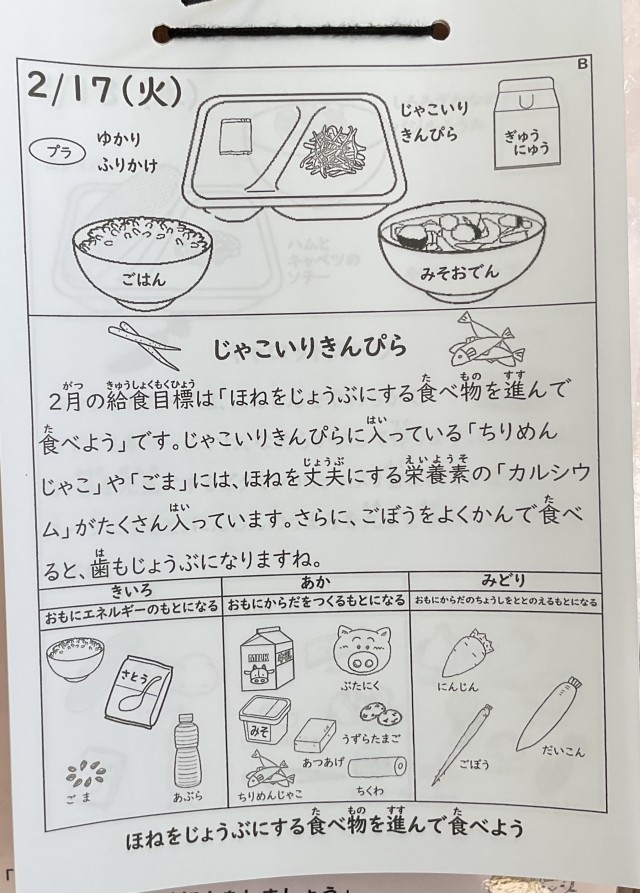 B
2/17(火)
プラ
ゆかり
ふりかけ
じゃこいり
きんぴら
ぎゅう
にゅう
ごはん
みそおでん
ハムと
キャベツの
ソテー
じゃこいりきんぴら
がつ きゅうしょくもくひょう た もの すす
2月の給食目標は「ほねをじょうぶにする食べ物を進んで
た はい
食べよう」です。じゃこいりきんぴらに入っている「ちりめん
じょうぶ えいようそ
じゃこ」や「ごま」には、ほねを丈夫にする栄養素の「カルシウ
はい た
ム」がたくさん入っています。さらに、ごぼうをよくかんで食べ
は
ると、歯もじょうぶになりますね。
きいろ
おもにエネルギーのもとになる
あか
おもにからだをつくるもとになる
みどり
おもにからだのちょうしをととのえるもとになる
さとう
ごま
あぶら
MILK
牛乳
ぶたにく
みそ
うずらたまご
あつあげ
ちりめんじゃこ
ちくわ
にんじん
ごぼう
だいこん
た もの すす た
ほねをじょうぶにする食べ物を進んで食べよう